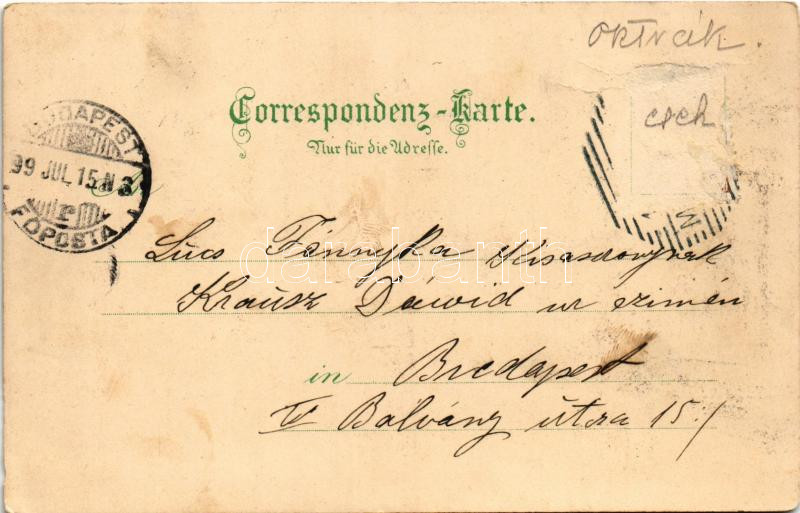 osztrák.
Correspondenz-Karte.
cseh
Nur für die Adresse.
BUDAPEST
99 JUL 15 N 3
FŐPOSTA
An
Fánnyka Kisasszonynak
Krausz Dáwid ur czimén
in Budapest
V Bálvány útza 15./
darabanth